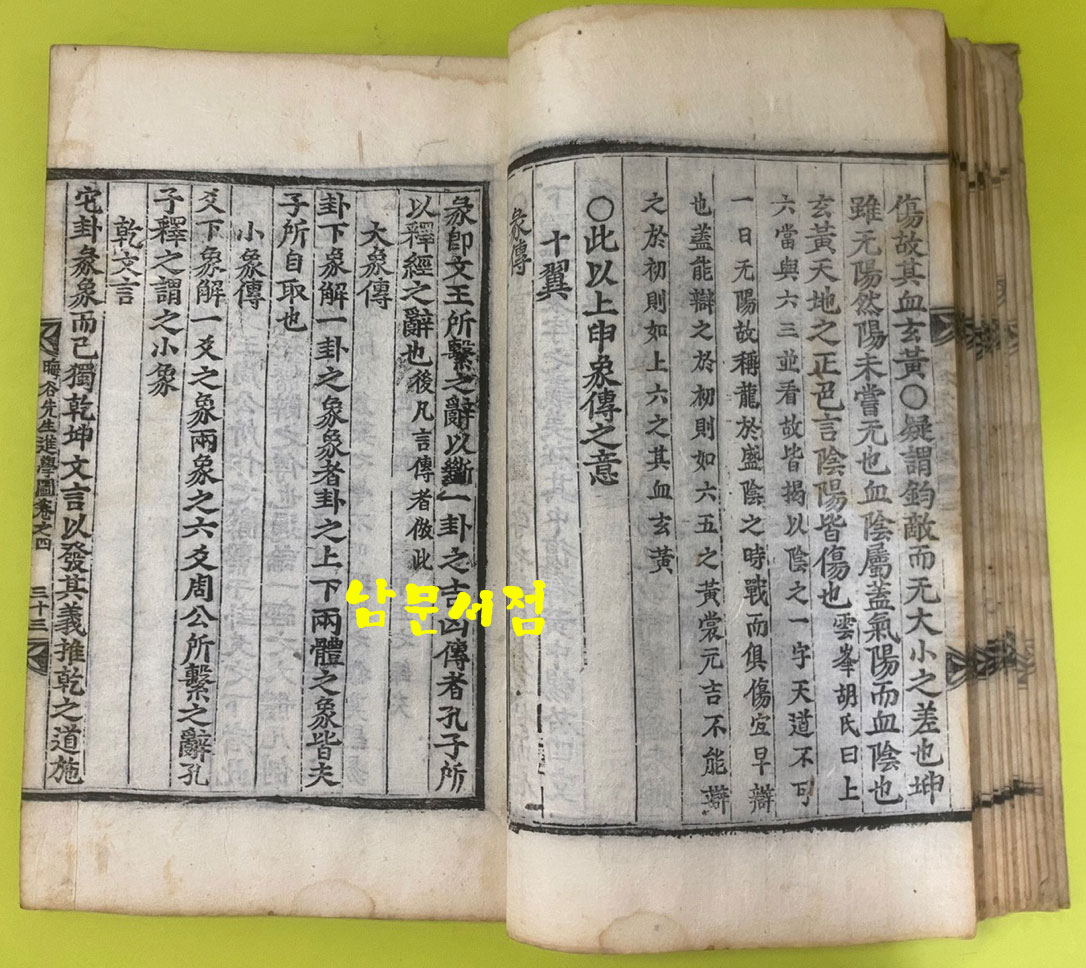 傷故其血玄黃○疑謂鈞敵而无大小之差也坤
雖无陽然陽未嘗无也血陰屬蓋氣陽而血陰也
玄黃天地之正色言陰陽皆傷也雲峯胡氏曰上
六當與六三並看故皆揭以陰之一字天道不可
一日无陽故稱龍於盛陰之時戰而俱傷宜早辯
也蓋能辯之於初則如六五之黃裳元吉不能辯
之於初則如上六之其血玄黃
○此以上申象傳之意
十翼
彖傳
彖卽文王所繫之辭以斷一卦之吉凶傳者孔子所
以釋經之辭也後凡言傳者倣此
大象傳
卦下象解一卦之象象者卦之上下兩體之象皆夫
子所自取也
小象傳
爻下象解一爻之象兩象之六爻周公所繫之辭孔
子釋之謂之小象
乾文言
它卦彖象而已獨乾坤文言以發其義推乾之道施
晦谷先生進學圖卷之四
三十三
남문서점